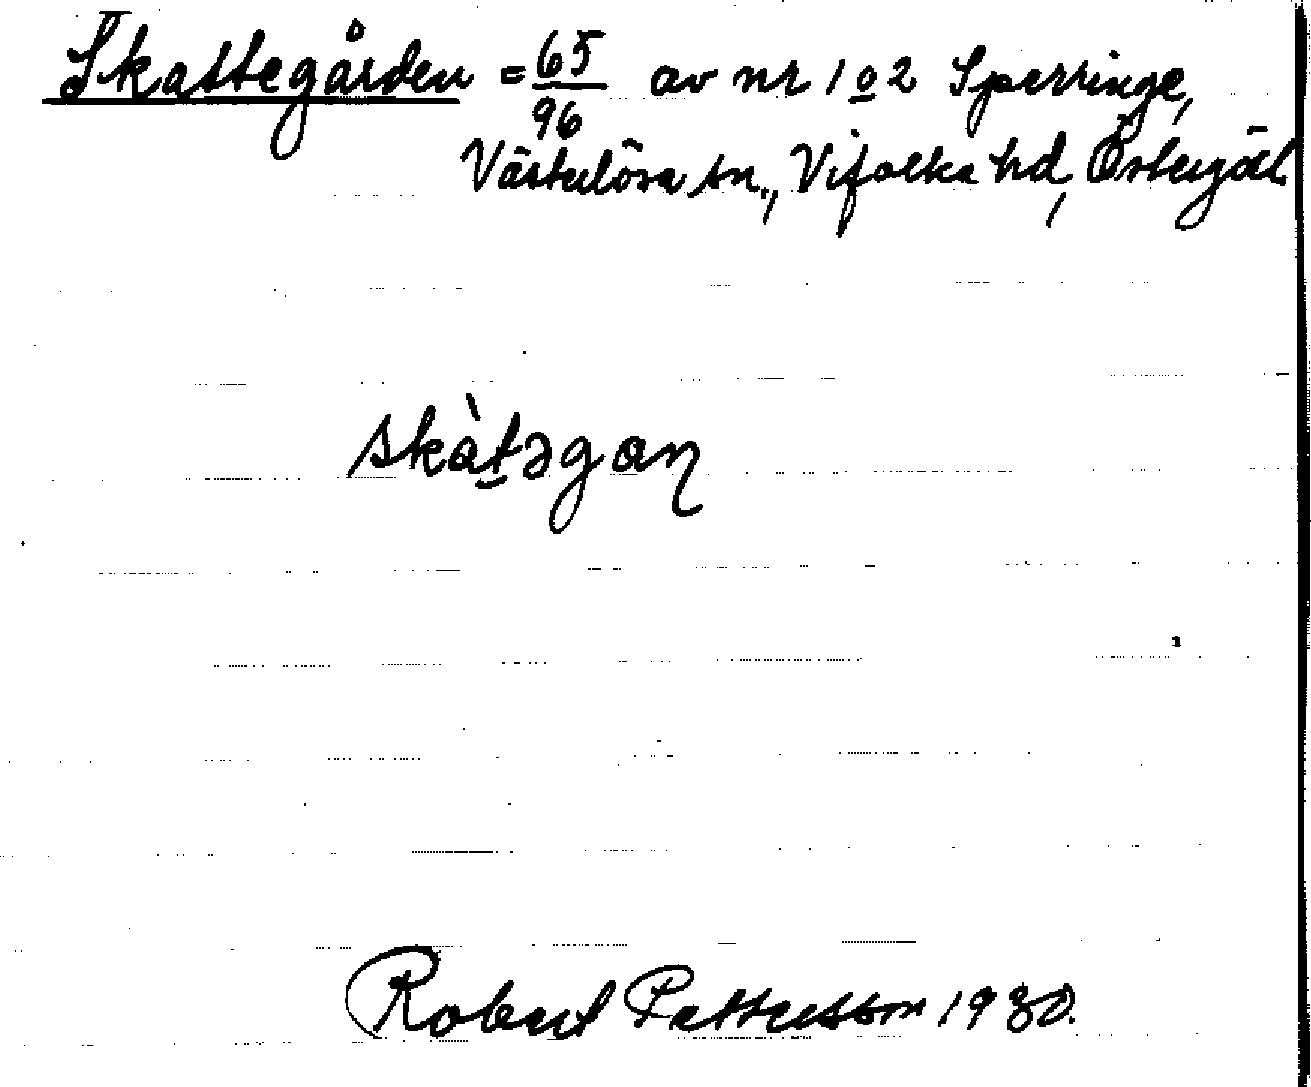 Skattegården = 65/96 av nr 1 o 2 Sperringe,
Västerlösa sn., Vifolka hd, Östergötl.
skàt̠əgan̡
Robert Pettersson 1930.